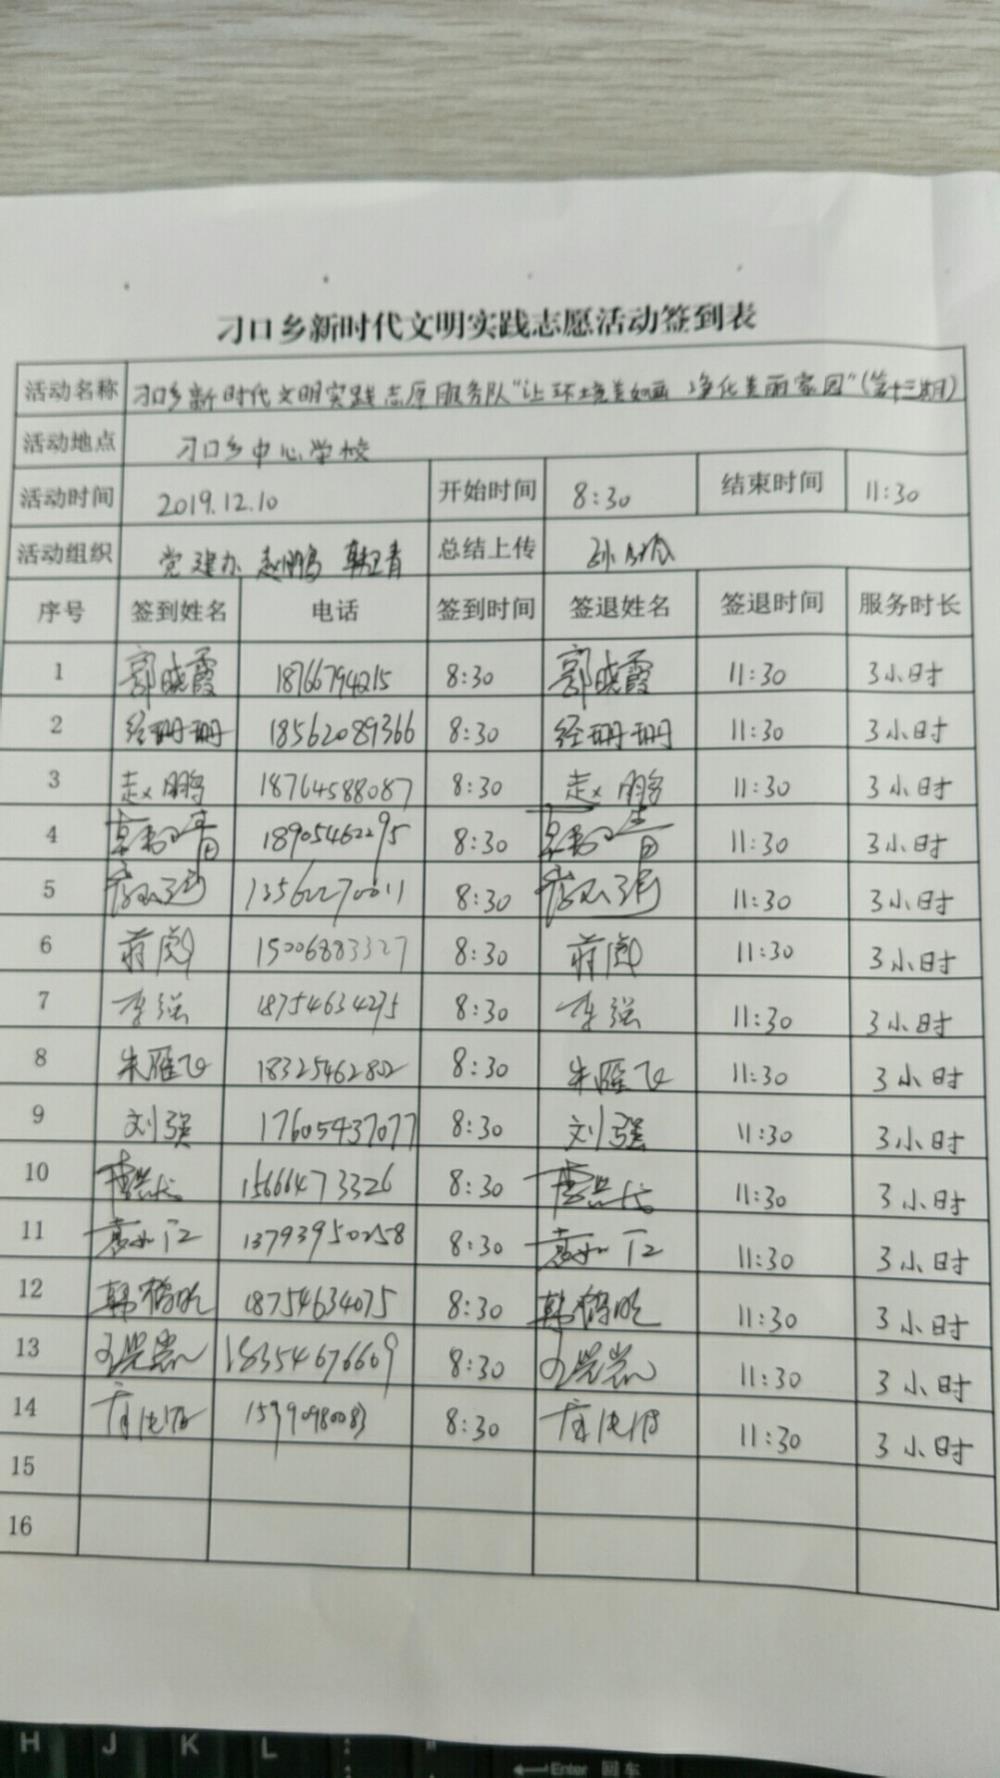 刁口乡新时代文明实践志愿活动签到表
活动名称 刁口乡新时代文明实践志愿服务队"让环境美如画 净化美丽家园"(第十三期)
活动地点 刁口乡中心学校
活动时间 2019.12.10 开始时间 8:30 结束时间 11:30
活动组织 党建办 赵鹏 韩卫青 总结上传
序号 签到姓名 电话 签到时间 签退姓名 签退时间 服务时长
1 郭晓霞 18766794215 8:30 郭晓霞 11:30 3小时
2 经珊珊 18562089366 8:30 经珊珊 11:30 3小时
3 赵鹏 18764588087 8:30 赵鹏 11:30 3小时
4 18905462295 8:30 11:30 3小时
5 13562270011 8:30 11:30 3小时
6 蒋彪 15006883327 8:30 蒋彪 11:30 3小时
7 李强 18754634295 8:30 李强 11:30 3小时
8 朱雁飞 18325462802 8:30 朱雁飞 11:30 3小时
9 刘强 17605437077 8:30 刘强 11:30 3小时
10 15666473326 8:30 11:30 3小时
11 13793950258 8:30 11:30 3小时
12 18754634075 8:30 11:30 3小时
13 18354676609 8:30 11:30 3小时
14 8:30 11:30 3小时
15
16
H J K L Enter 回车